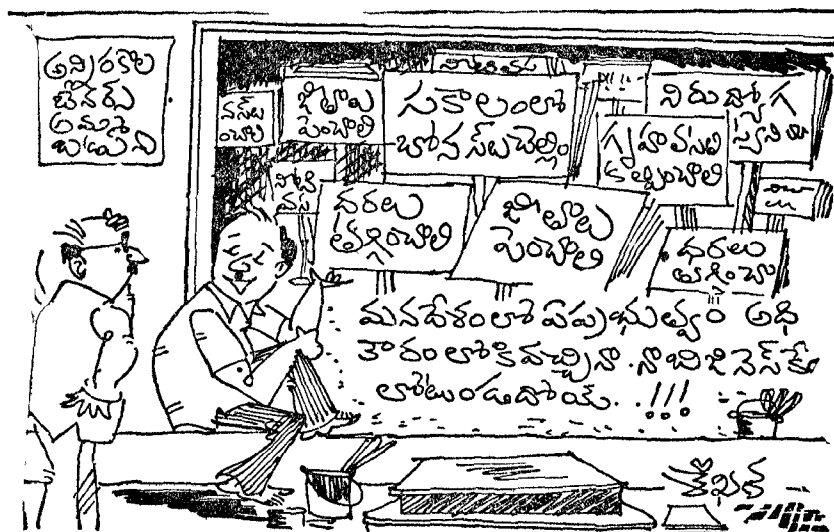 అన్నిరకాల
బేనర్లు
అమ్మ
బడును
జీతాలు
పెంచాలి
సకాలంలో
బోనస్ చెల్లిం
నిరుద్యోగ
గృహవసతి
కల్పించాలి
ధరలు
తగ్గించాలి
జీతాలు
పెంచాలి
ధరలు
తగ్గించా
మనదేశంలో ఏప్రభుత్వం అధి
కారం లోకివచ్చినా.నాబిజినెస్‌కేం
లోటుండదోయ్..!!!
శేఖర్